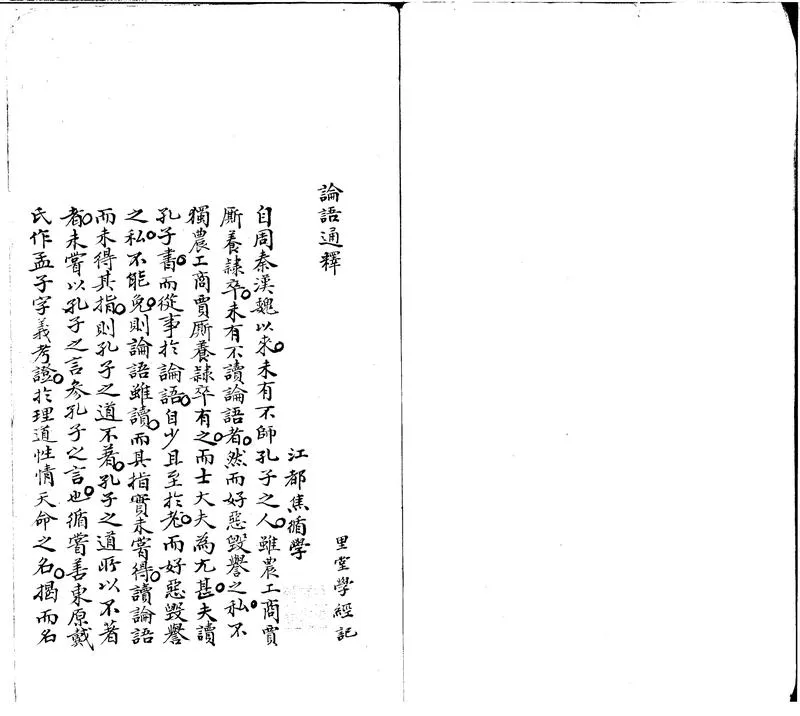 論語通釋
里堂學經記
江都焦循學
自周秦漢魏以來。未有不師孔子之人。雖農工商賈
廝養隷卒。未有不讀論語者。然而好惡毀譽之私。不
獨農工商賈廝養隷卒有之。而士大夫為尤甚。夫讀
孔子書。而從事於論語。自少且至於老。而好惡毀譽
之私。不能免。則論語雖讀。而其指實未嘗得。讀論語
而未得其指。則孔子之道不著。孔子之道所以不著
者。未嘗以孔子之言參孔子之言也。循嘗善東原戴
氏作孟子字義考證。於理道性情天命之名。揭而名